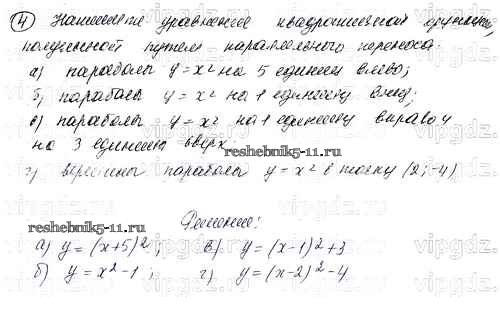 4) Напишите уравнение квадратичной функции,
полученной путем параллельного переноса:
а) параболы y = x² на 5 единиц влево;
б) параболы y = x² на 1 единицу вниз;
в) параболы y = x² на 1 единицу вправо и
на 3 единицы вверх
reshebnik5-11.ru
г) вершины параболы y = x² в точку (2; -4)
Решение:
reshebnik5-11.ru
а) y = (x+5)²; в) y = (x-1)² + 3
б) y = x² - 1; г) y = (x-2)² - 4